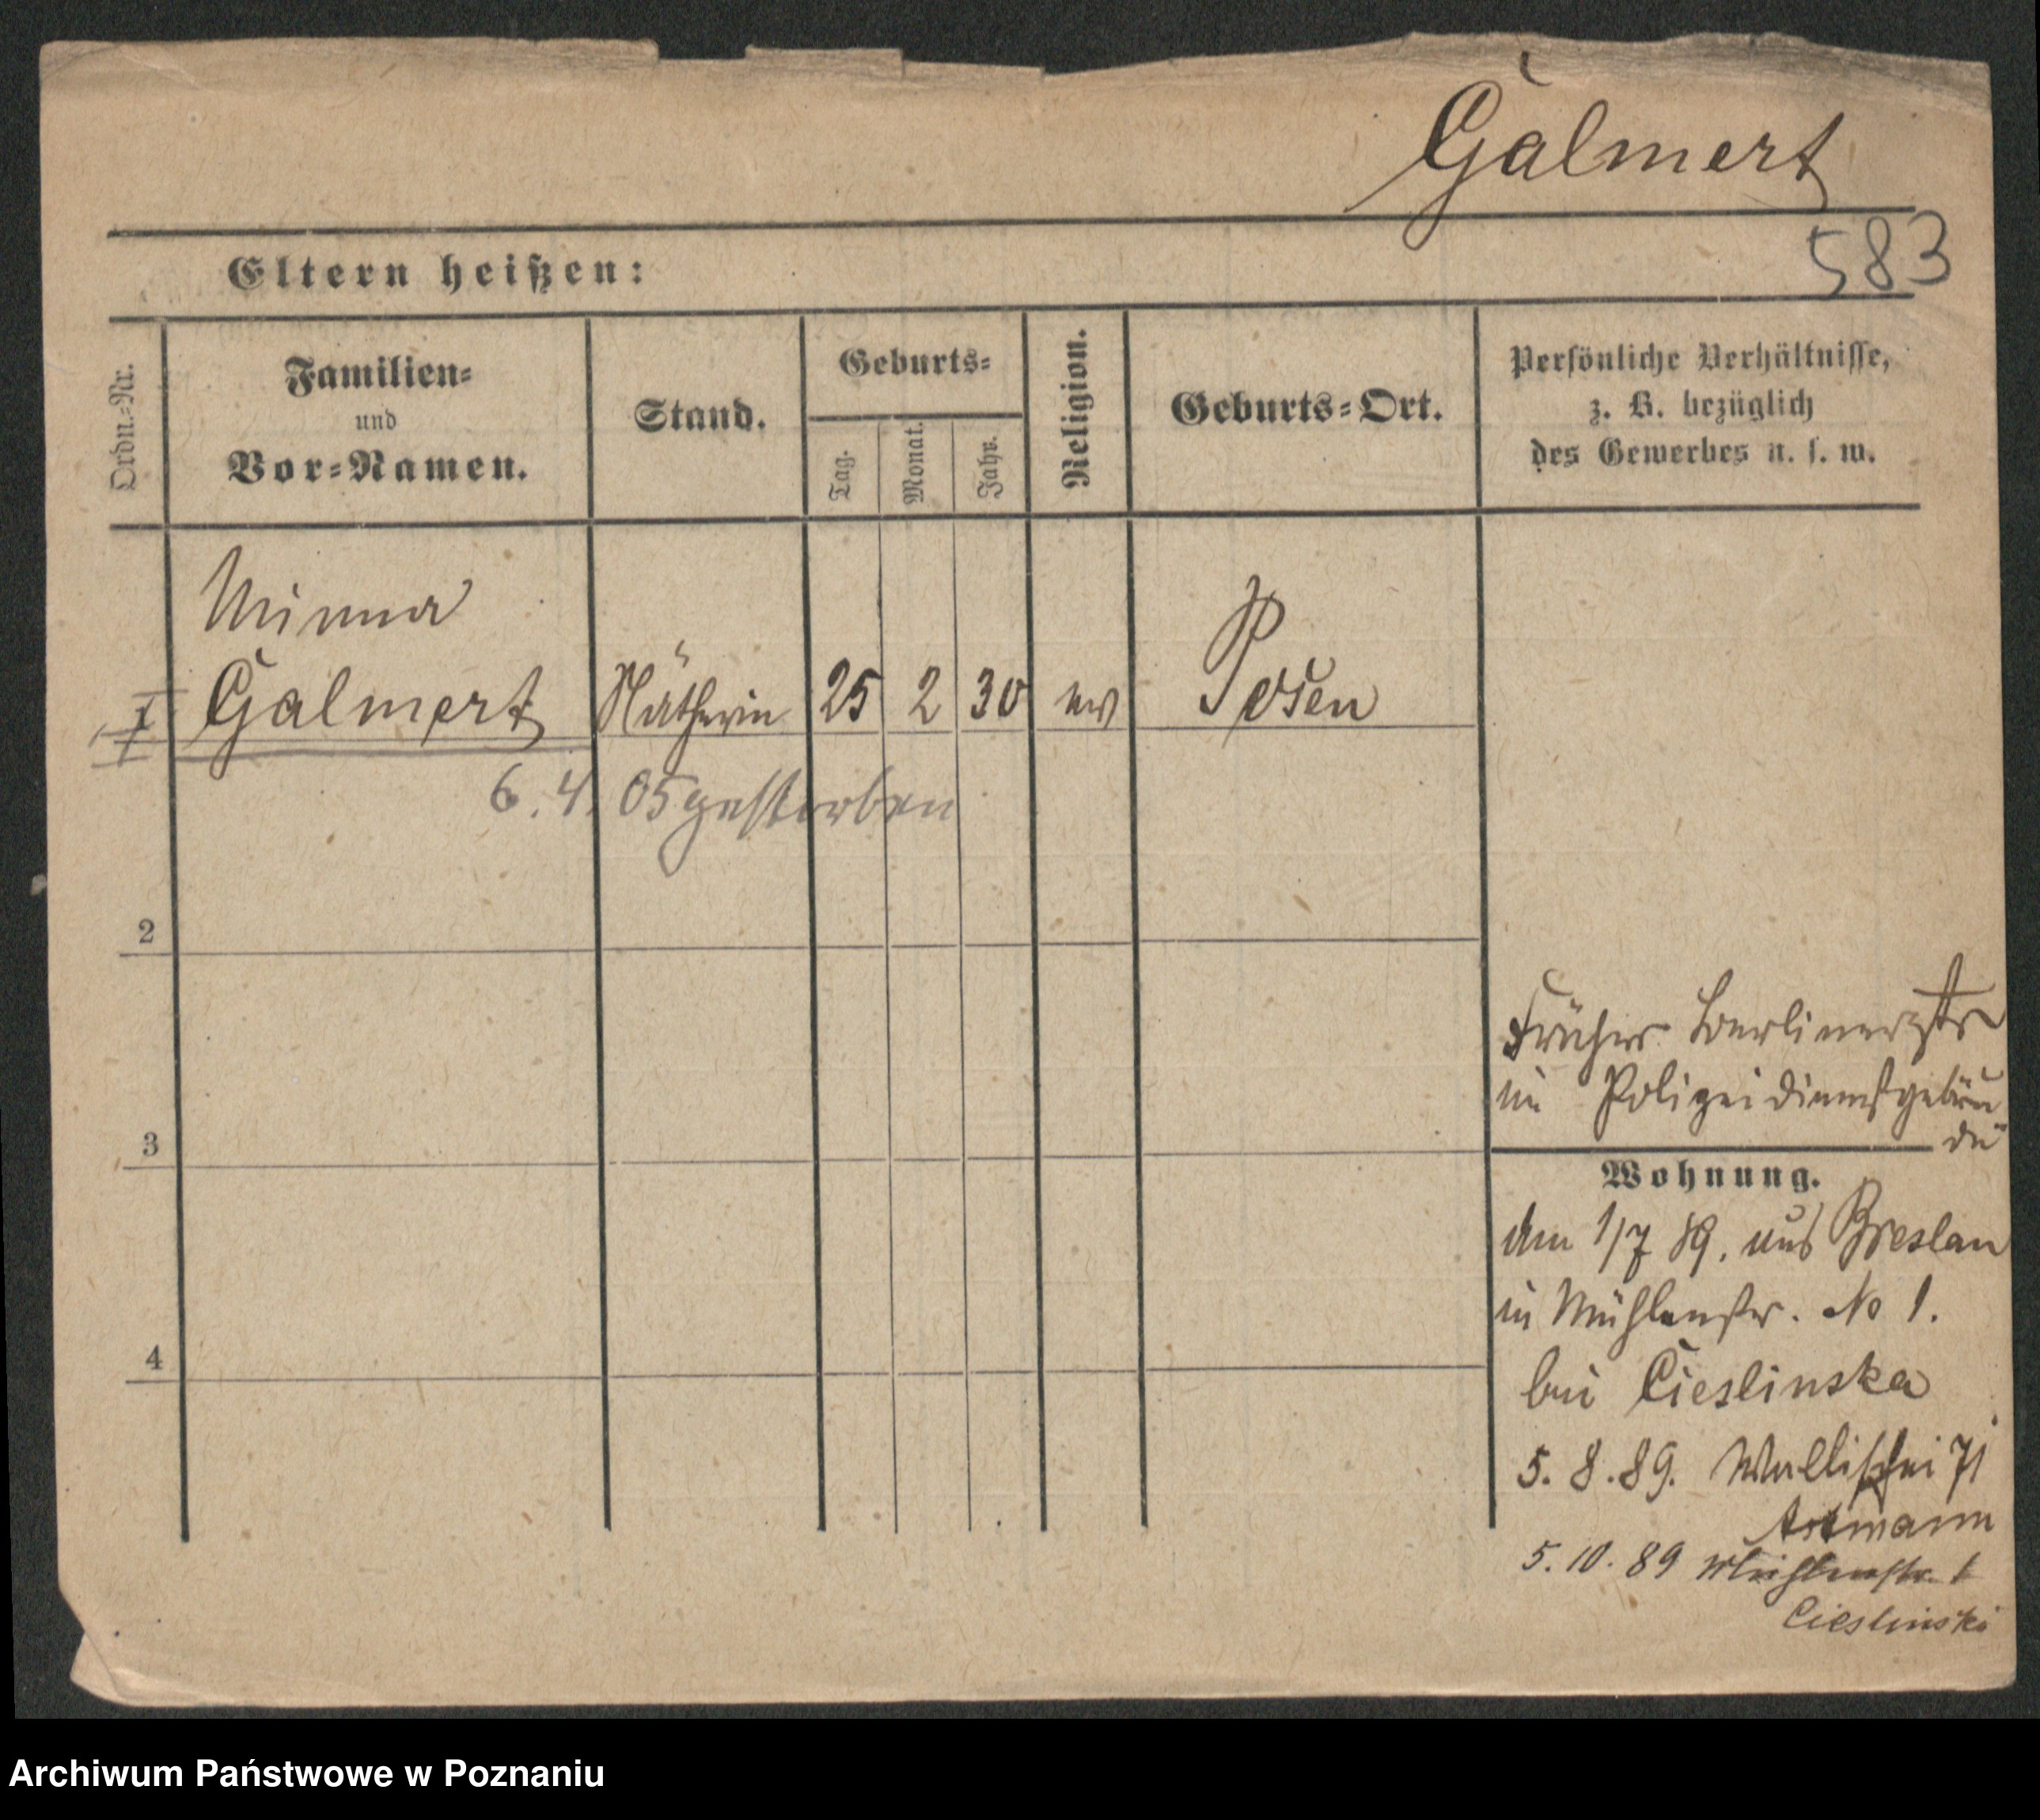 Galmert
583
Eltern heißen:
Ordn.-Nr.
Familien-
und
Vor-Namen.
Stand.
Geburts-
Tag.
Monat.
Jahr.
Religion.
Geburts-Ort.
Persönliche Verhältnisse,
z. B. bezüglich
des Gewerbes u. s. w.
Minna
1 Galmert Nätherin 25 2 30 ev Posen
6.4. 05 gestorben
2
3
4
Früher Berlinerstr
im Polizeidienstgebäu
de
Wohnung.
Am 1/7 89. aus Breslau
in Mühlenstr. No 1.
bei Cieslinska
5. 8. 89. Wallischei 71
5. 10. 89 Mühlenstr. 1
Cieslinski
Archiwum Państwowe w Poznaniu